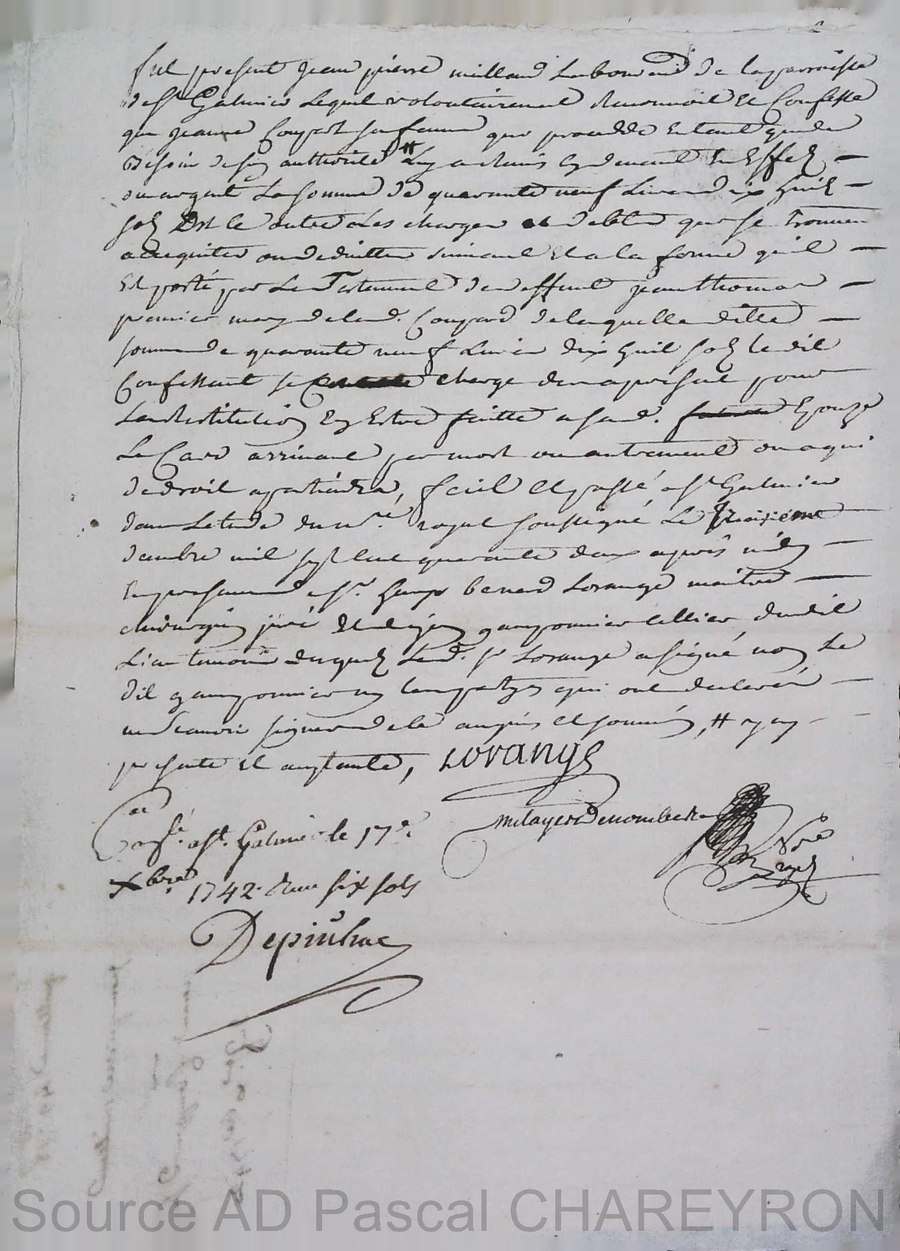 fut present jean pierre milland Laboureur de la parroisse
de St Galmier Lequel volontairement Reconnoit Et Confesse
que jeanne Coupat sa femme qui procedde Entant que de
Besoin de son authorité # Luy a Remis cydevant En Effets
ou argent La somme de quarante neuf Livres dix huit
sols Et ce outre Les charges et debtes qui se trouvent
acquitées suivant Et a la forme qu'il
Est porté par Le Testament de deffunt jean thomas
premier mary de lad. Coupard de laquelle ditte
somme de quarante neuf Livres dix huit sols le dit
Confessant se charge des a présent pour
La restitution En Estre faitte a sad. Epouze
Le Cas arrivant par mort ou autrement ou a qui
de droit apartiendra, fait Et passé a St Galmier
dans Letude du nre. royal soussigné Le
mil sept cent quarante deux après midy
En presence de Sr. benard Lorange maitre
chirurgien juré Et ganponnier cellier dudit
Lieu temoins Lesquels Led. Sr Lorange a signé non Le
dit ganponnier ny les partyes qui ont declaré
ne scavoir signer de ce enquis Et sommés, # icy
presente Et aceptante, Lorange
Cé a St. Galmier le 17e.
Xbre 1742. Reçu six sols
Nre
royal
Source AD Pascal CHAREYRON